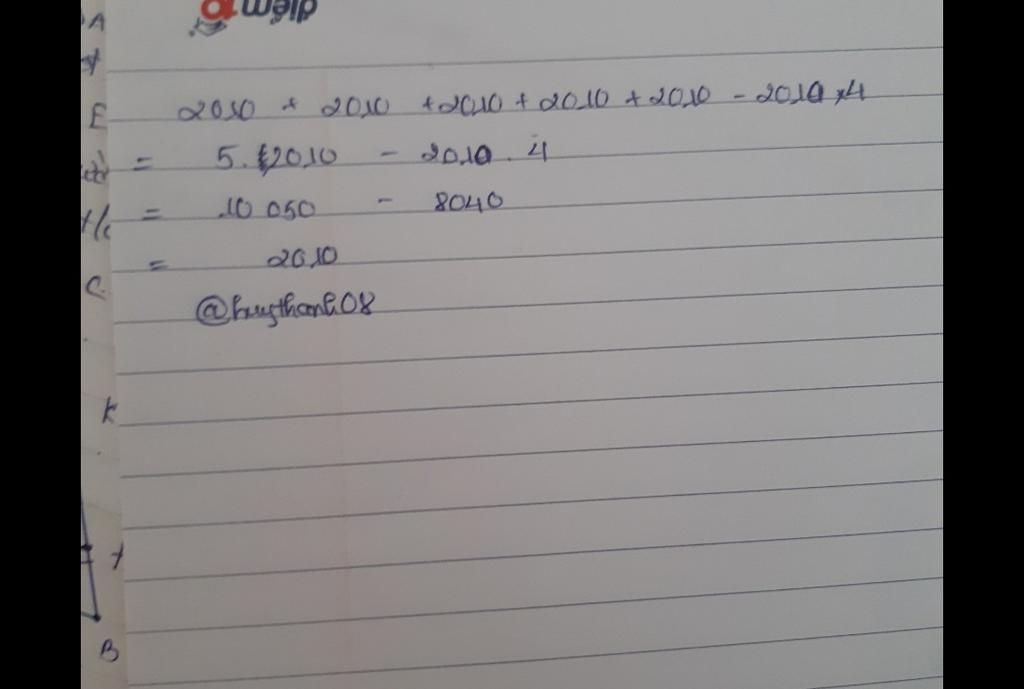 điểm 10
A
E 2010 + 2010 + 2010 + 2010 + 2010 - 2010 x 4
= 5. 2010 - 2010 . 4
= 10 050 - 8040
= 2010
C
@huythanh08
K
B